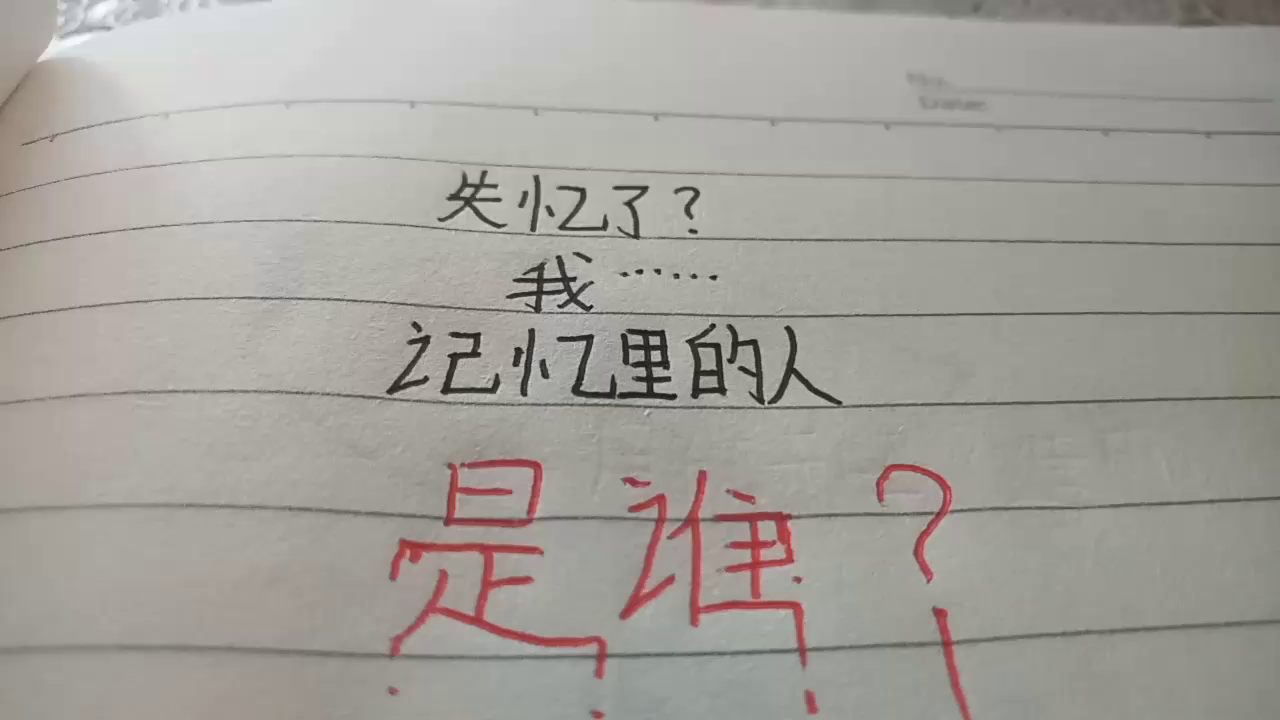 失忆了?
我……
记忆里的人
是谁?